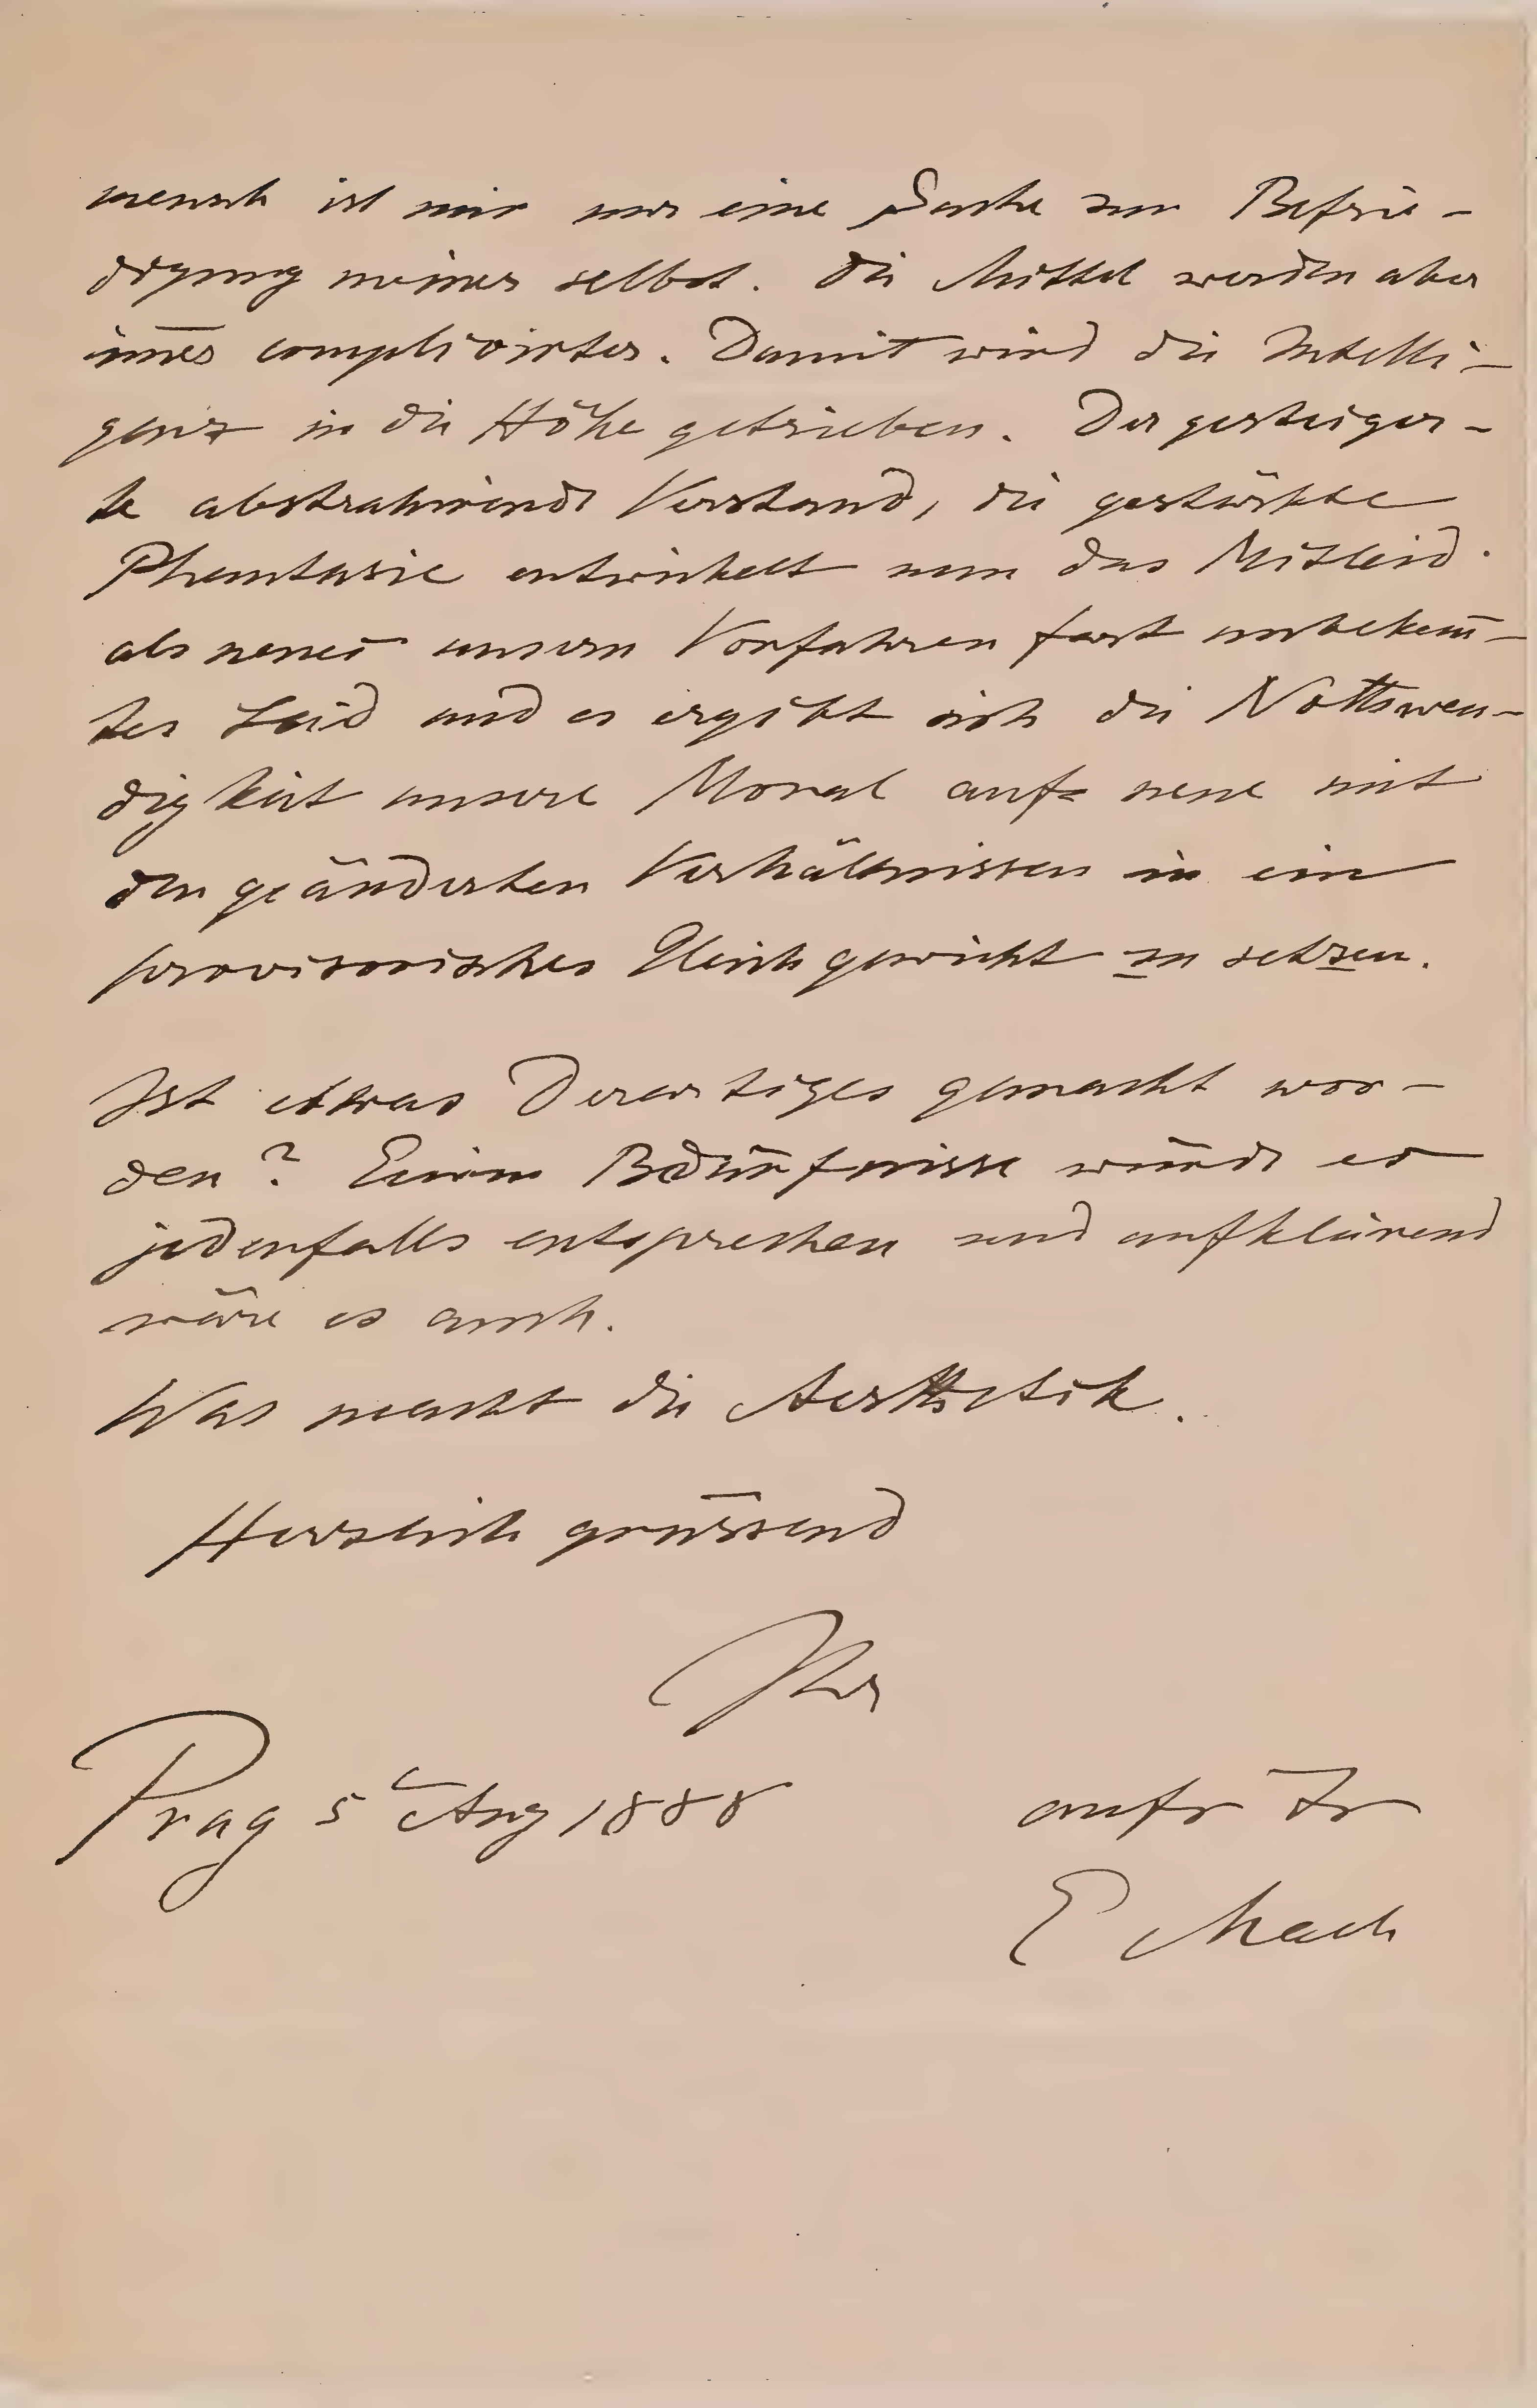 mensch ist mir nur eine Sache zur Befrie-
digung meiner selbst. Die Mittel werden aber
im̄er complicirter. Damit wird die Intelli-
genz in die Höhe getrieben. Der gesteiger-
te abstrahirende Verstand, die gestärkte
Phantasie entwickelt nun das Mitleid
als neues unsern Vorfahren fast unbekan̄-
tes Leid und es ergibt sich die Nothwen-
digkeit unsere Moral aufs neue mit
den geänderten Verhältnissen in ein
provisorisches Gleichgewicht zu setzen.
Ist etwas Derartiges gemacht wor-
den? Einem Bedürfnisse würde es
jedenfalls entsprechen und aufklärend
wäre es auch.
Was macht die Aesthetik.
Herzlich grüssend
Ihr
Prag 5 Aug 1888
aufr Fr
E Mach